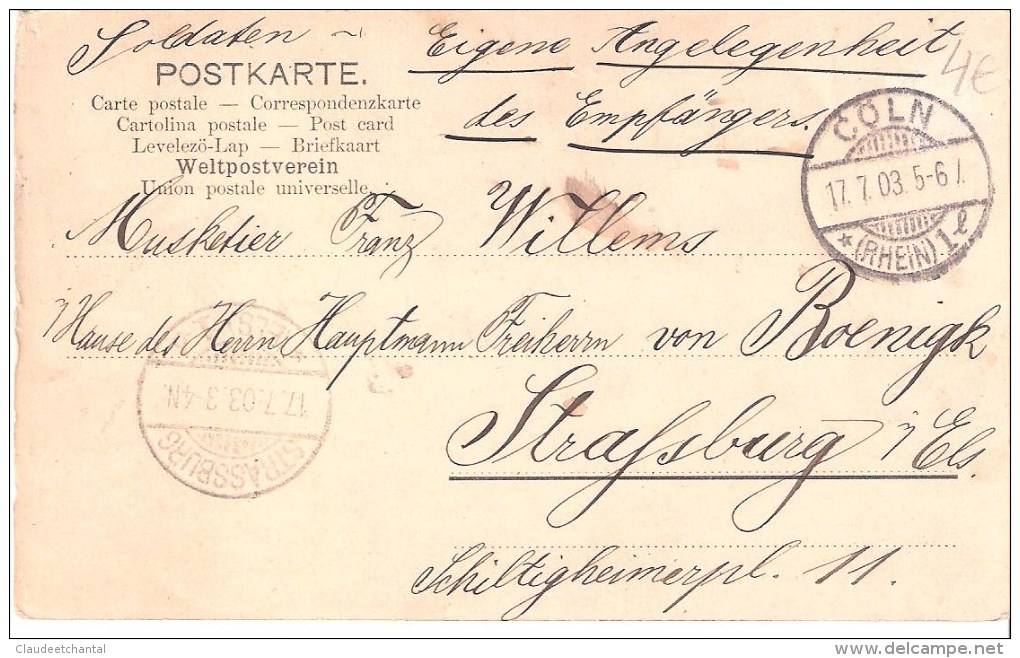 Soldaten ~ Eigene Angelegenheit
des Empfängers.
4€
POSTKARTE.
Carte postale — Correspondenzkarte
Cartolina postale — Post card
Levelezö-Lap — Briefkaart
Weltpostverein
Union postale universelle.
CÖLN
17.7.03. 5-6
* (RHEIN) 1 l
Musketier Franz Willems
i/Hause des Herrn Hauptmann Freiherrn von Boenigk
Straßburg i/Els.
Schiltigheimerpl. 11.
17.7.03. 3-4N.
STRASSBURG
Claudeetchantal
delcampe.net